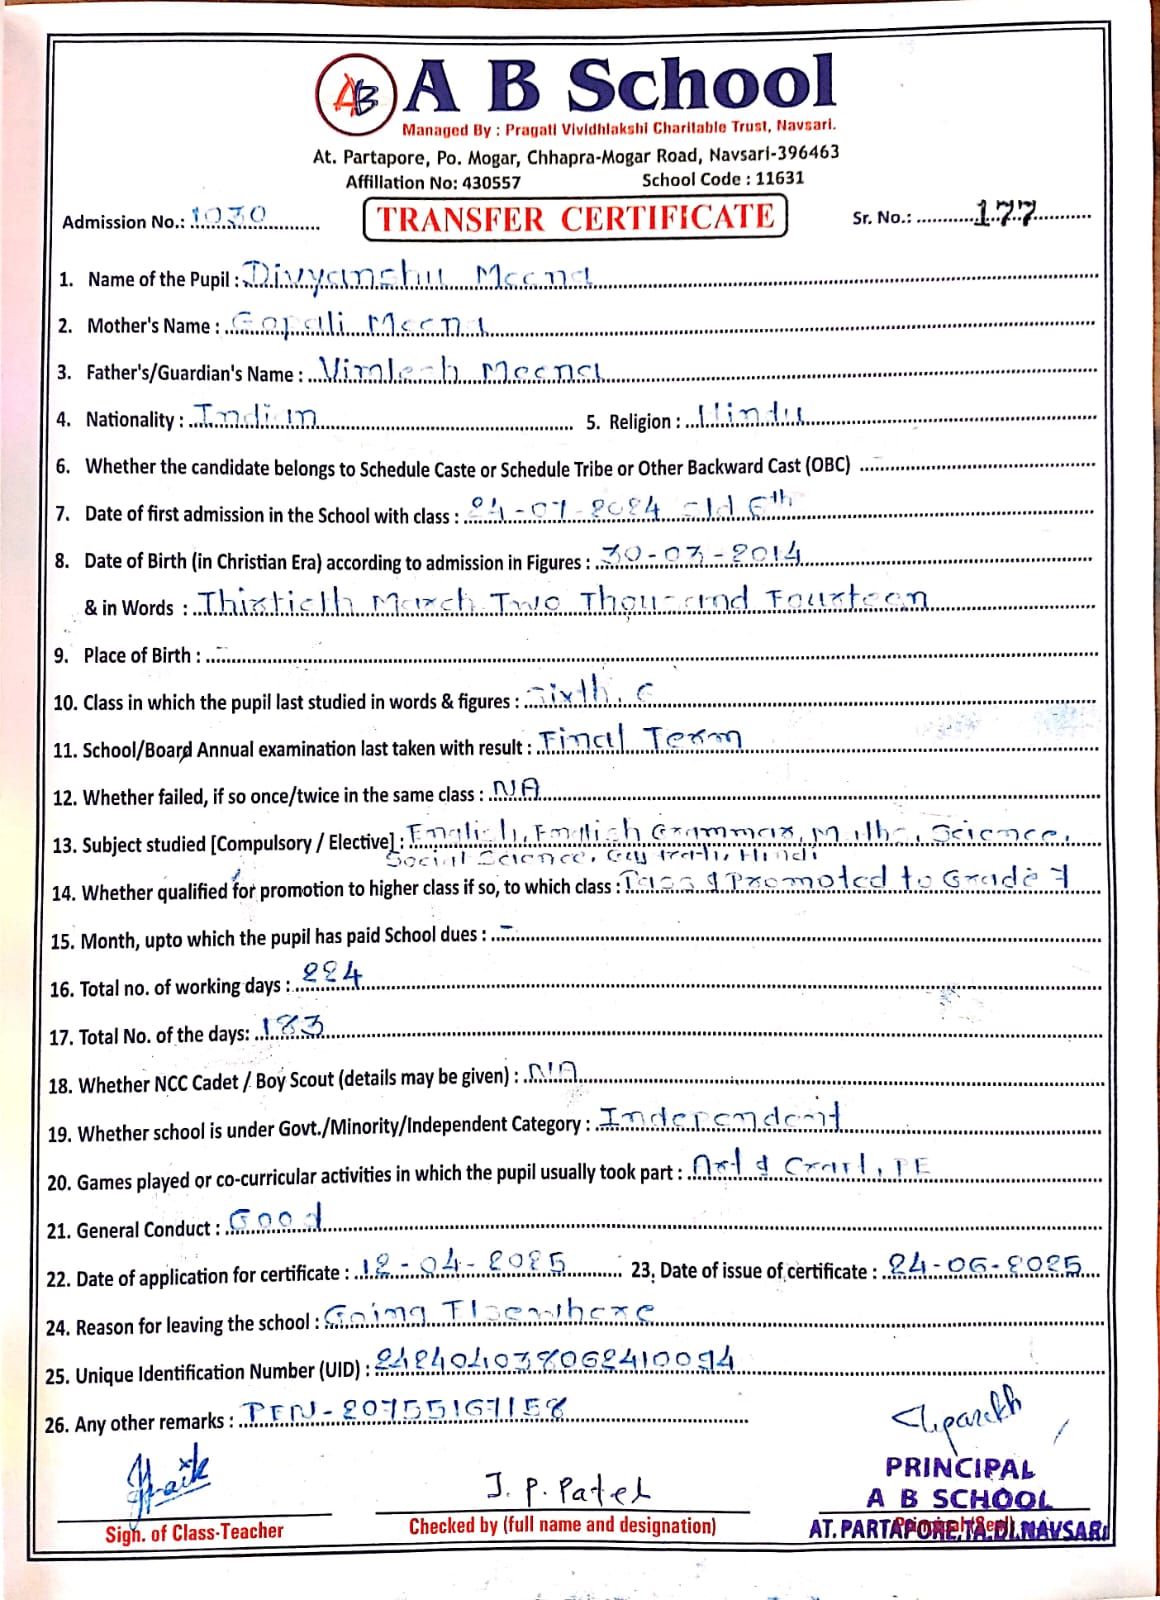 AB A B School
Managed By : Pragati Vividhlakshi Charitable Trust, Navsari.
At. Partapore, Po. Mogar, Chhapra-Mogar Road, Navsari-396463
Affiliation No: 430557 School Code : 11631
Admission No.: 1030 TRANSFER CERTIFICATE Sr. No.: 177
1. Name of the Pupil : Divyanshu Meena
2. Mother's Name : Gopali Meena
3. Father's/Guardian's Name : Vimlesh Meena
4. Nationality : Indian 5. Religion : Hindu
6. Whether the candidate belongs to Schedule Caste or Schedule Tribe or Other Backward Cast (OBC) -
7. Date of first admission in the School with class : 24-07-2024 std 6th
8. Date of Birth (in Christian Era) according to admission in Figures : 30-03-2014
& in Words : Thirtieth March Two Thousand Fourteen
9. Place of Birth : -
10. Class in which the pupil last studied in words & figures : Sixth, 6
11. School/Board Annual examination last taken with result : Final Term
12. Whether failed, if so once/twice in the same class : NA
13. Subject studied [Compulsory / Elective] : English, English Grammar, Maths, Science,
Social Science, Gujrati, Hindi
14. Whether qualified for promotion to higher class if so, to which class : Pass & Promoted to Grade 7
15. Month, upto which the pupil has paid School dues : -
16. Total no. of working days : 224
17. Total No. of the days: 183
18. Whether NCC Cadet / Boy Scout (details may be given) : NA
19. Whether school is under Govt./Minority/Independent Category : Independent
20. Games played or co-curricular activities in which the pupil usually took part : Art & Craft, PE
21. General Conduct : Good
22. Date of application for certificate : 12-04-2025 23. Date of issue of certificate : 24-06-2025
24. Reason for leaving the school : Going Elsewhere
25. Unique Identification Number (UID) : 242404038062410094
26. Any other remarks : PEN-20755167158
PRINCIPAL
J. P. Patel A B SCHOOL
Sign. of Class-Teacher Checked by (full name and designation) AT. PARTAPORE, TA. DI. NAVSARI